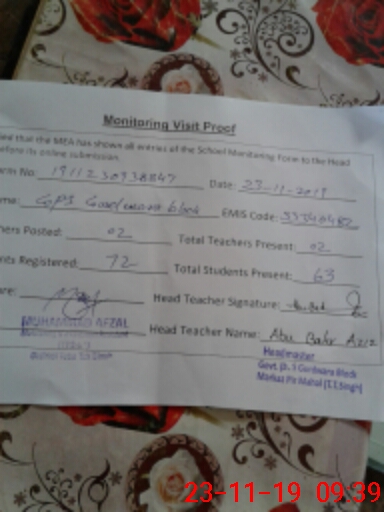 Monitoring Visit Proof
that the MEA has shown all entries of the School Monitoring Form to the Head
before its online submission.
No: 1911230938847 Date: 23-11-2019
GPS Gurdwara block EMIS Code: 33340482
Posted: 02 Total Teachers Present: 02
Registered: 72 Total Students Present: 63
Head Teacher Signature:
MUHAMMAD AFZAL Head Teacher Name: Abu Bakr Aziz
Headmaster
Govt. P. S Gurdwara Block
Markaz Pir Mahal (T.T.Singh)
23-11-19 09:39